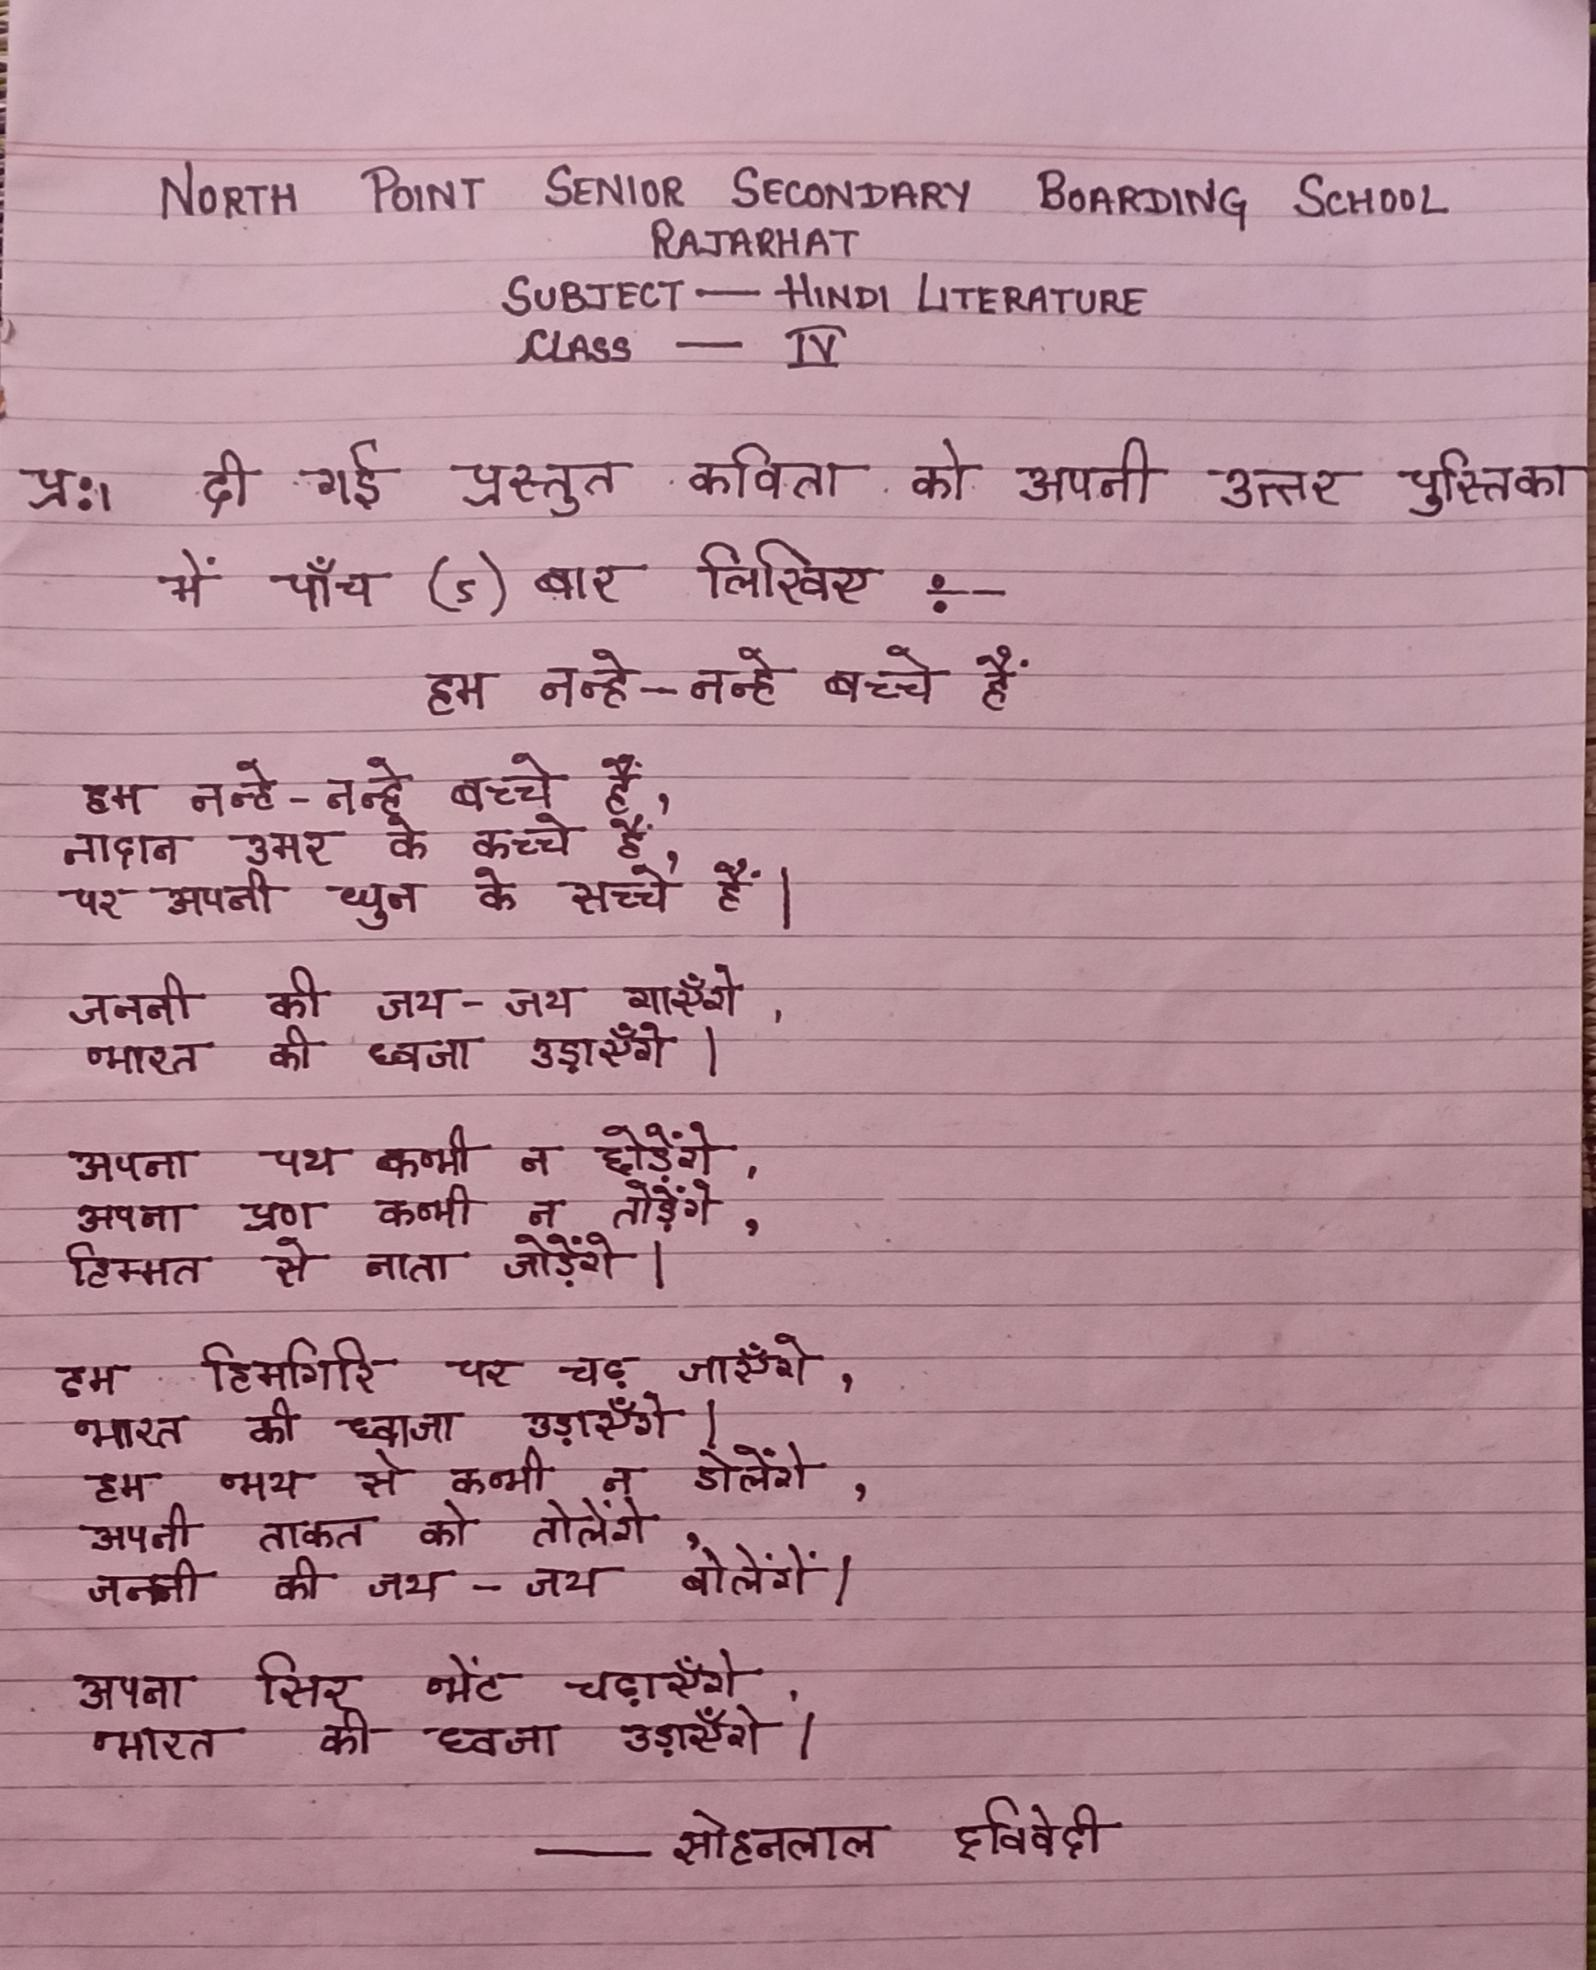 NORTH POINT SENIOR SECONDARY BOARDING SCHOOL
RAJARHAT
SUBJECT — HINDI LITERATURE
CLASS — IV
प्र:1 दी गई प्रस्तुत कविता को अपनी उत्तर पुस्तिका
में पाँच (5) बार लिखिए :-
हम नन्हे-नन्हे बच्चे हैं
हम नन्हे-नन्हे बच्चे हैं,
नादान उमर के कच्चे हैं,
पर अपनी धुन के सच्चे हैं।
जननी की जय-जय गाएँगे,
भारत की ध्वजा उड़ाएँगे।
अपना पथ कभी न छोड़ेंगे,
अपना प्रण कभी न तोड़ेंगे,
हिम्मत से नाता जोड़ेंगे।
हम हिमगिरि पर चढ़ जाएँगे,
भारत की ध्वाजा उड़ाएँगे।
हम भय से कभी न डोलेंगे,
अपनी ताकत को तोलेंगे,
जननी की जय-जय बोलेंगें।
अपना सिर भेंट चढ़ाएँगे,
भारत की ध्वजा उड़ाएँगे।
— सोहनलाल द्विवेदी